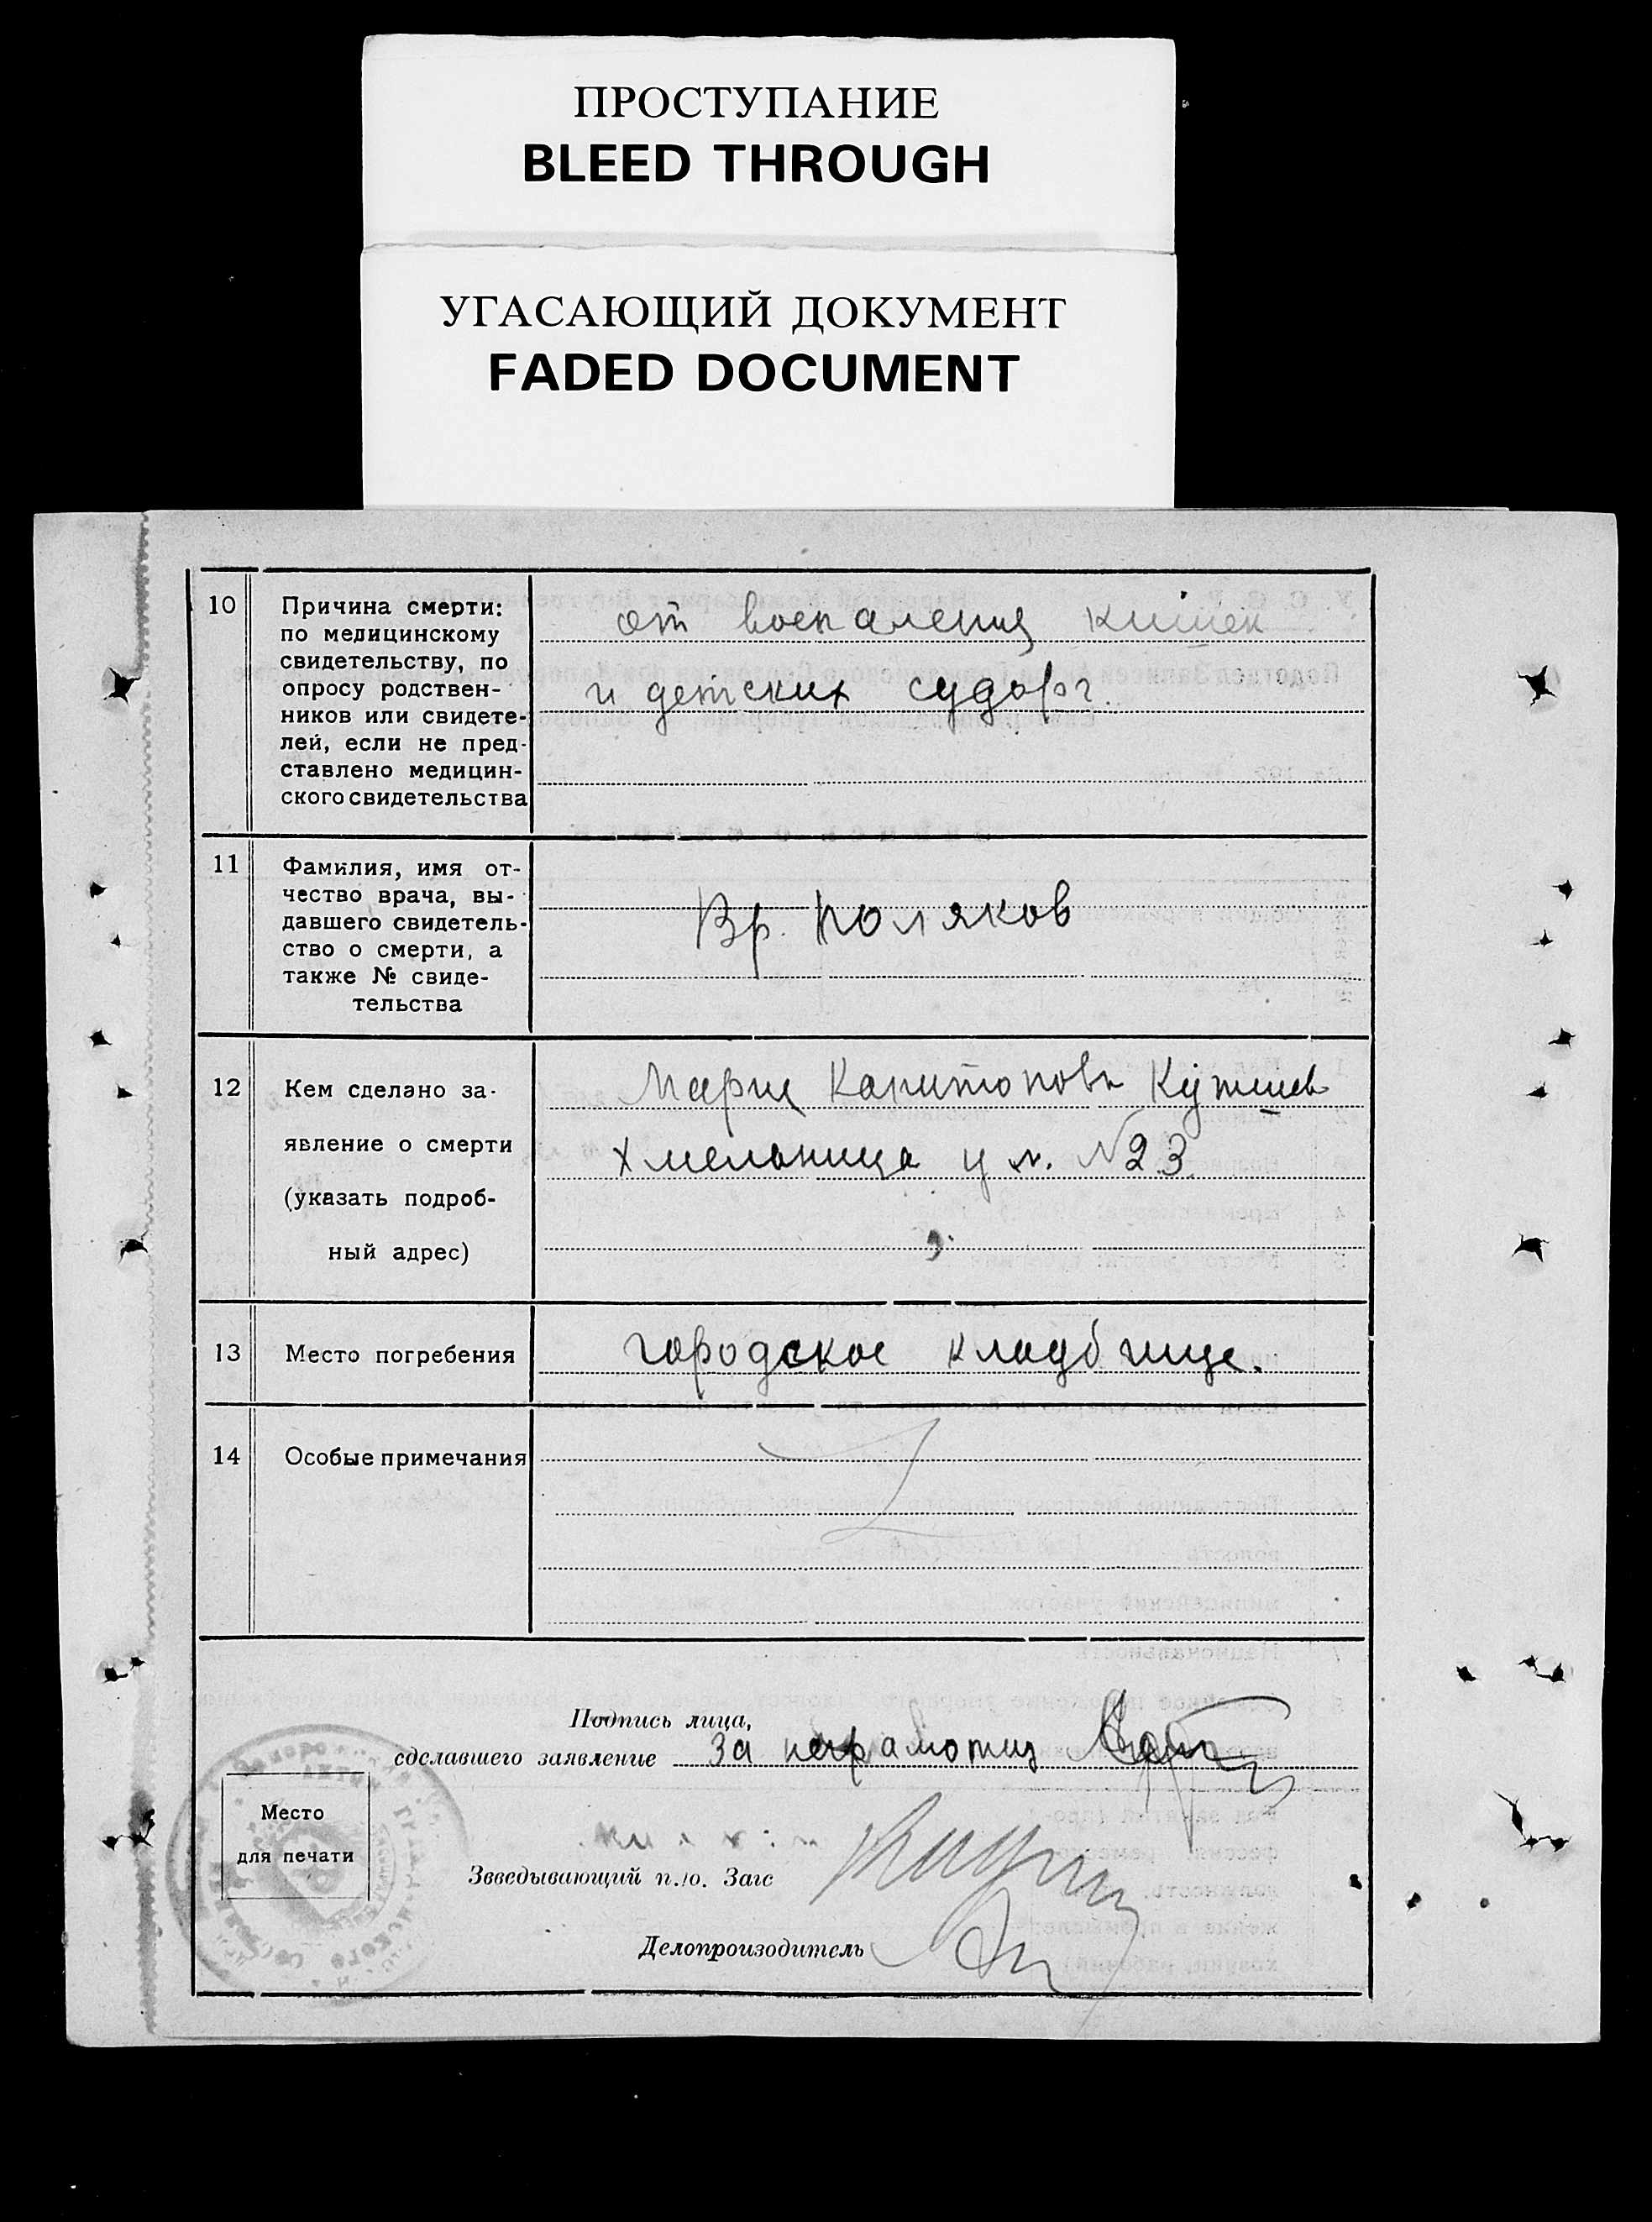 ПРОСТУПАНИЕ
BLEED THROUGH
УГАСАЮЩИЙ ДОКУМЕНТ
FADED DOCUMENT
10
Причина смерти:
по медицинскому
свидетельству, по
опросу родствен-
ников или свидете-
лей, если не пред-
ставлено медицин-
ского свидетельства
от воспаления кишек
и детских судорг.
11
Фамилия, имя от-
чество врача, вы-
давшего свидетель-
ство о смерти, а
также № свиде-
тельства
Вр. Поляков
12
Кем сделано за-
явление о смерти
(указать подроб-
ный адрес)
Мария Капитонова
Хмельница ул. №23
13
Место погребения
городское кладбище.
14
Особые примечания
Подпись лица,
сделавшего заявление
за неграмотну
Место
для печати
Зведывающий п./о. Загс
Делопроизодитель